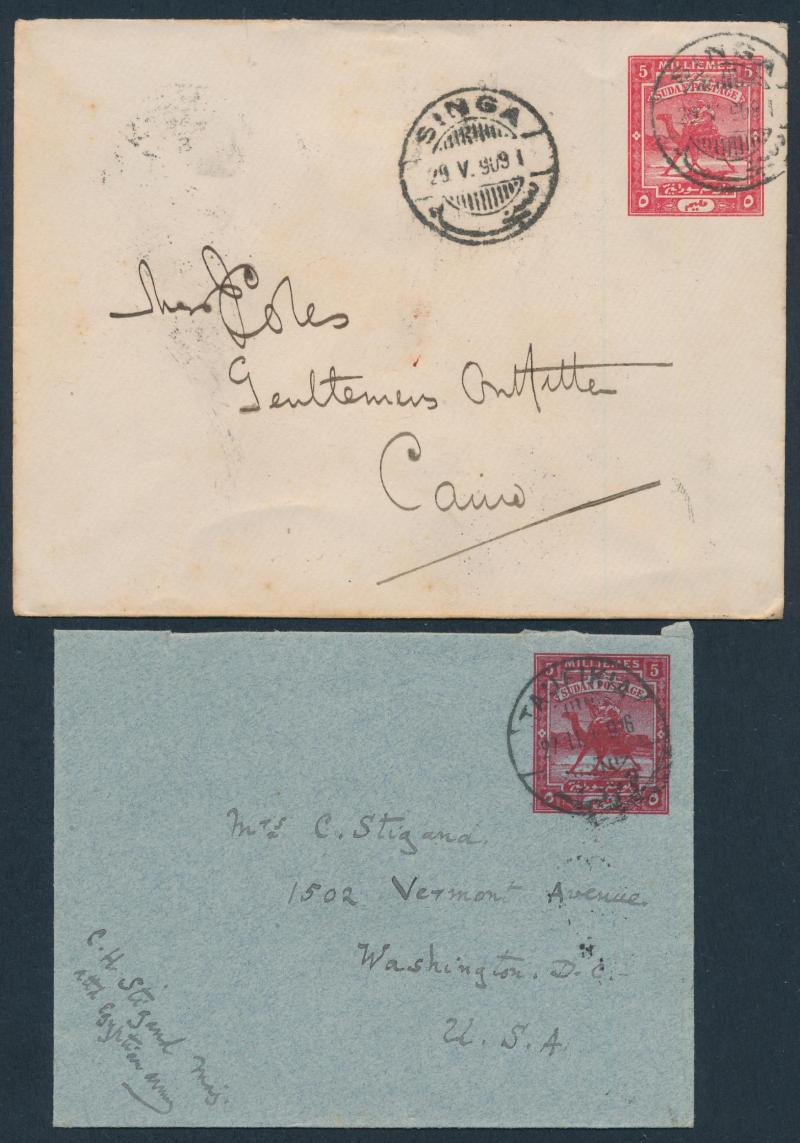 5 MILLIEMES 5
SUDAN POSTAGE
٥ مليم ٥
SINGA
29 V. 909 1
SINGA
Coles
Gentlemens Outfitter
Cairo
5 MILLIEMES 5
SUDAN POSTAGE
٥ ٥
TAUFIKIA
Mrs C. Stigand.
1502 Vermont Avenue
Washington. D. C.
U. S. A.
C. H. Stigand Maj.
Egyptian Army